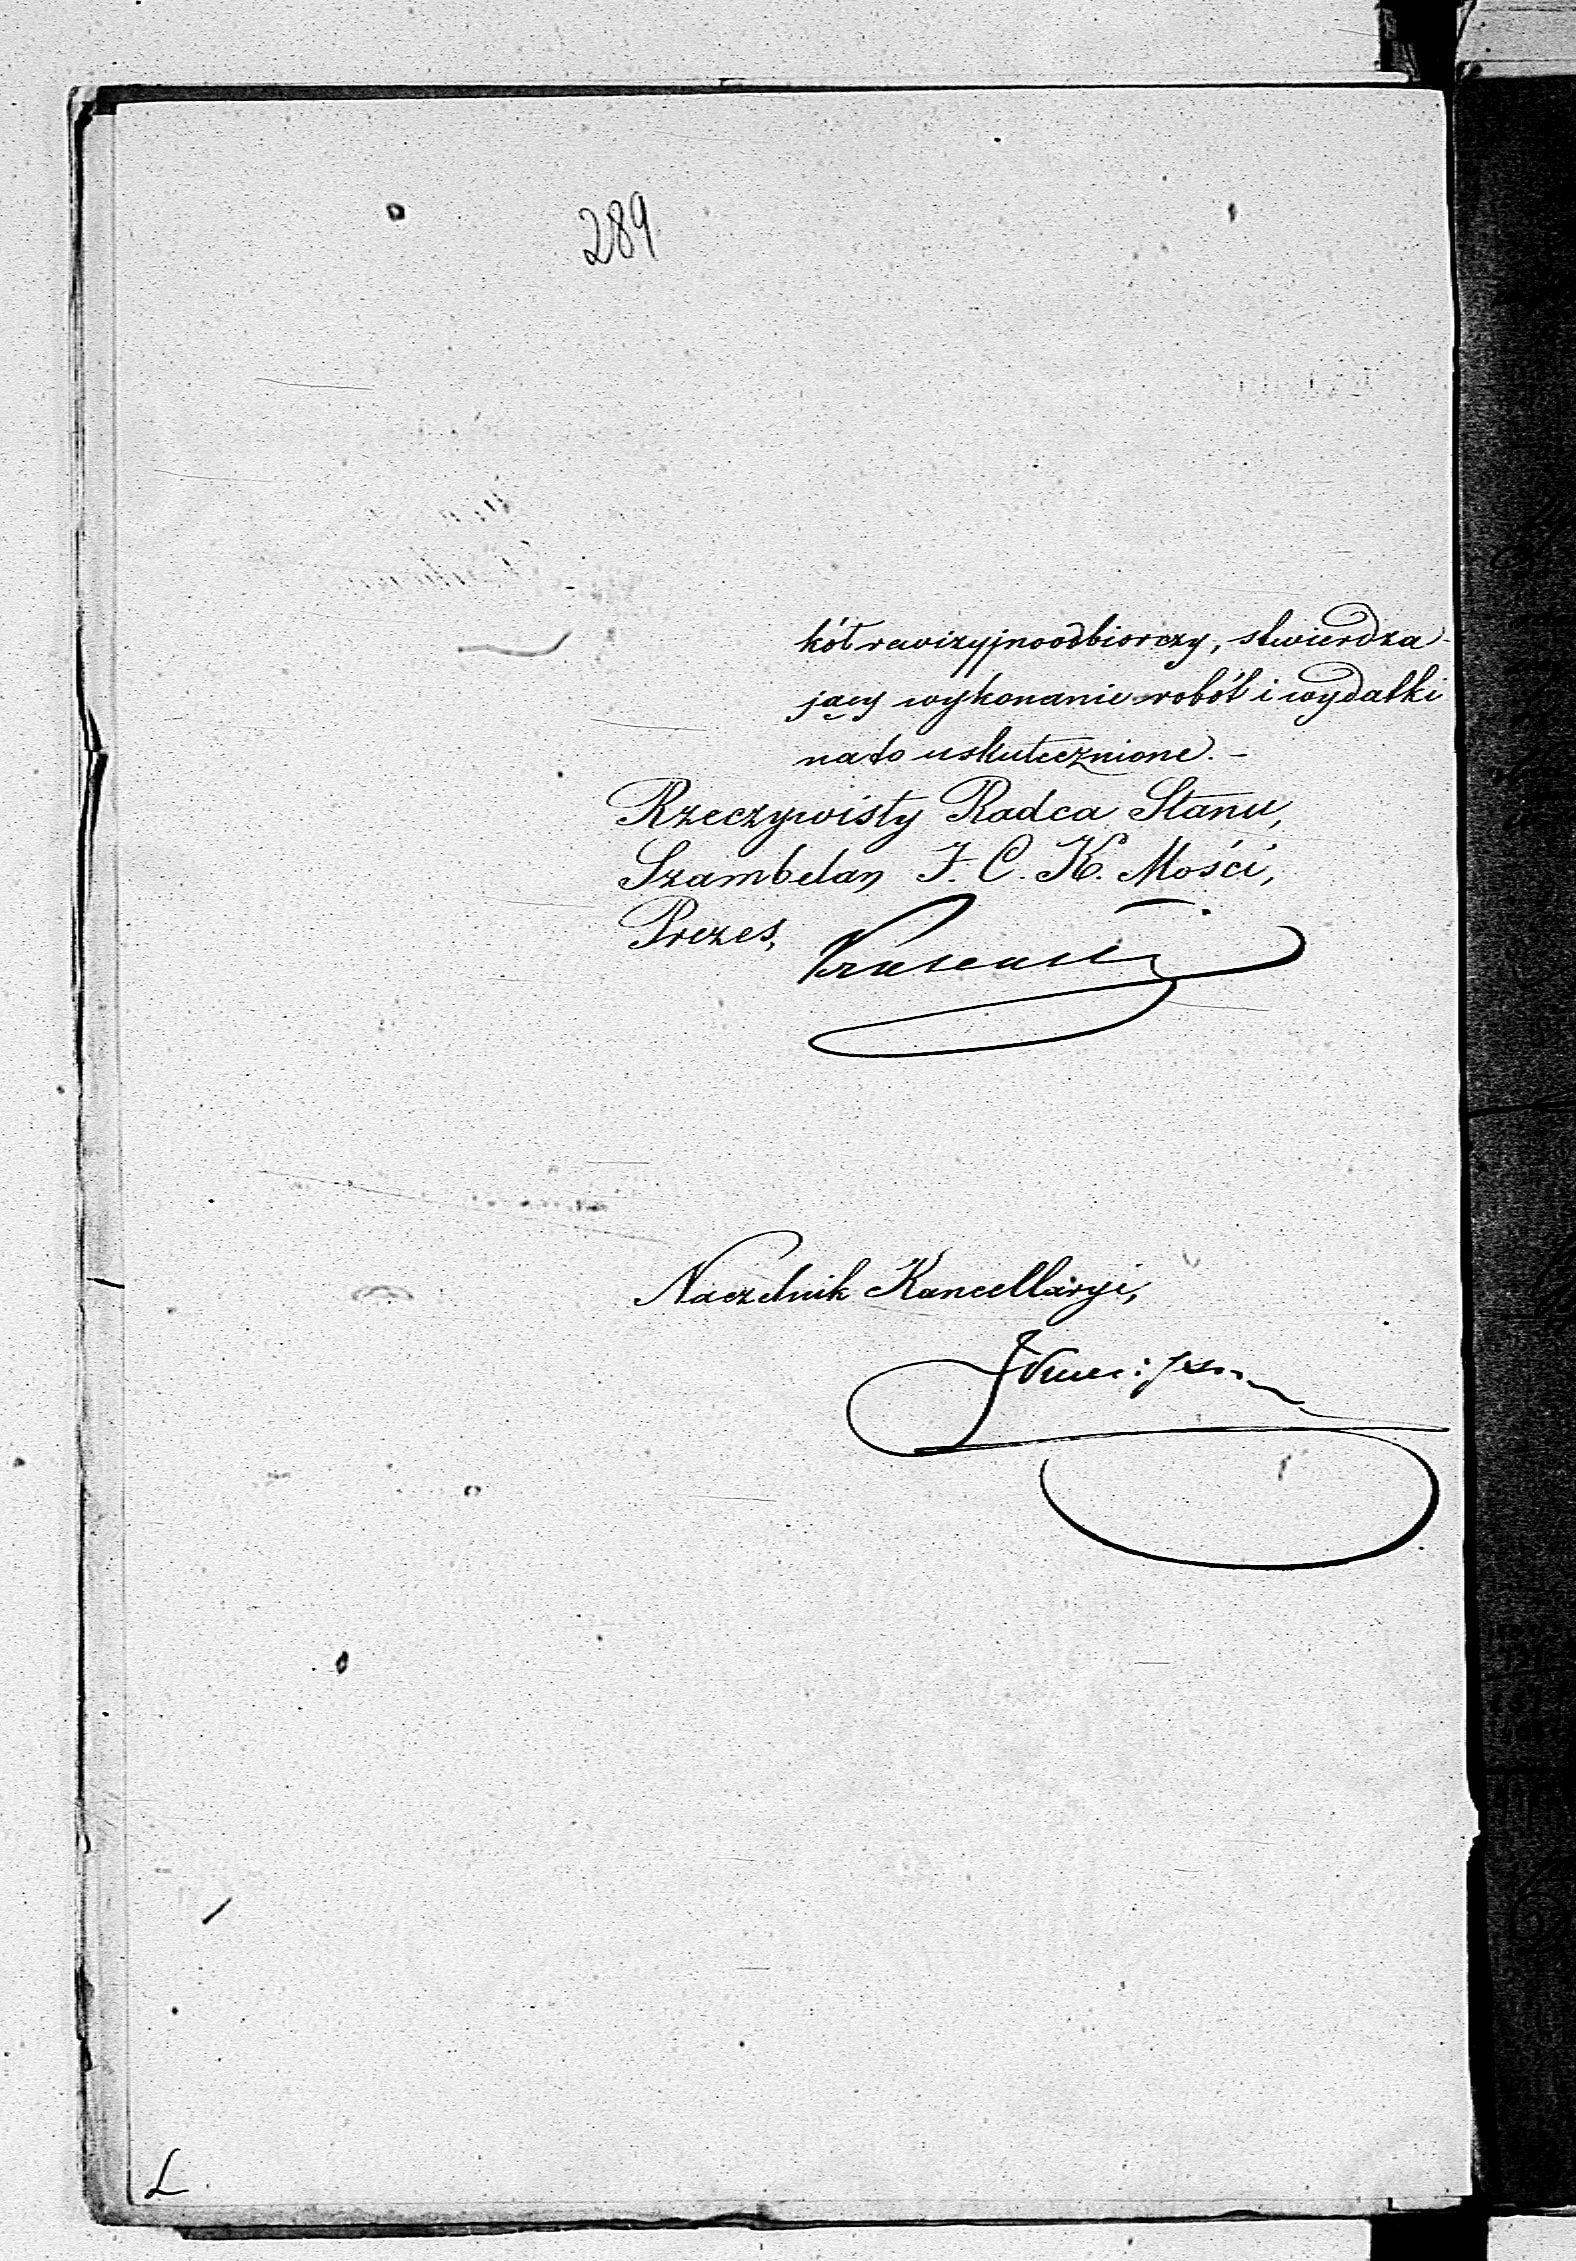 289
kół rewizyjnoodbiorczy, stwierdza-
jący wykonanie robót i wydatki
na to uskutecznione. –
Rzeczywisty Radca Stanu,
Szambelan J. C. K. Mości,
Prezes,
Naczelnik Kancellaryi,
L